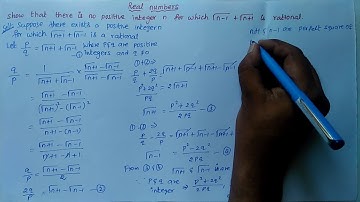 Real numbers
Show that there is no positive integer n for which √n-1 + √n+1 is rational.
Sol: Suppose there exists a positive integer n
for which √n-1 + √n+1 is a rational
Let p/q = √n+1 + √n-1 where p & q are positive
integers and q ≠ 0
q/p = 1/(√n+1 + √n-1) × (√n+1 - √n-1)/(√n+1 - √n-1)
= (√n+1 - √n-1)/((√n+1)² - (√n-1)²)
= (√n+1 - √n-1)/(n+1 - (n-1))
= (√n+1 - √n-1)/(n+1 - n+1)
q/p = (√n+1 - √n-1)/2
2q/p = √n+1 - √n-1 - ②
①+② ⇒
p/q + 2q/p = √n+1 + √n-1 + √n+1 - √n-1
(p² + 2q²)/pq = 2√n+1
√n+1 = (p² + 2q²)/2pq - ③
①-② ⇒
p/q - 2q/p = √n+1 + √n-1
√n-1 = (p² - 2q²)/2pq - ④
From ③ & ④
p & q are
integer ⇒ (p² + 2q²)/2pq,
n+1 & n-1 are perfect square of